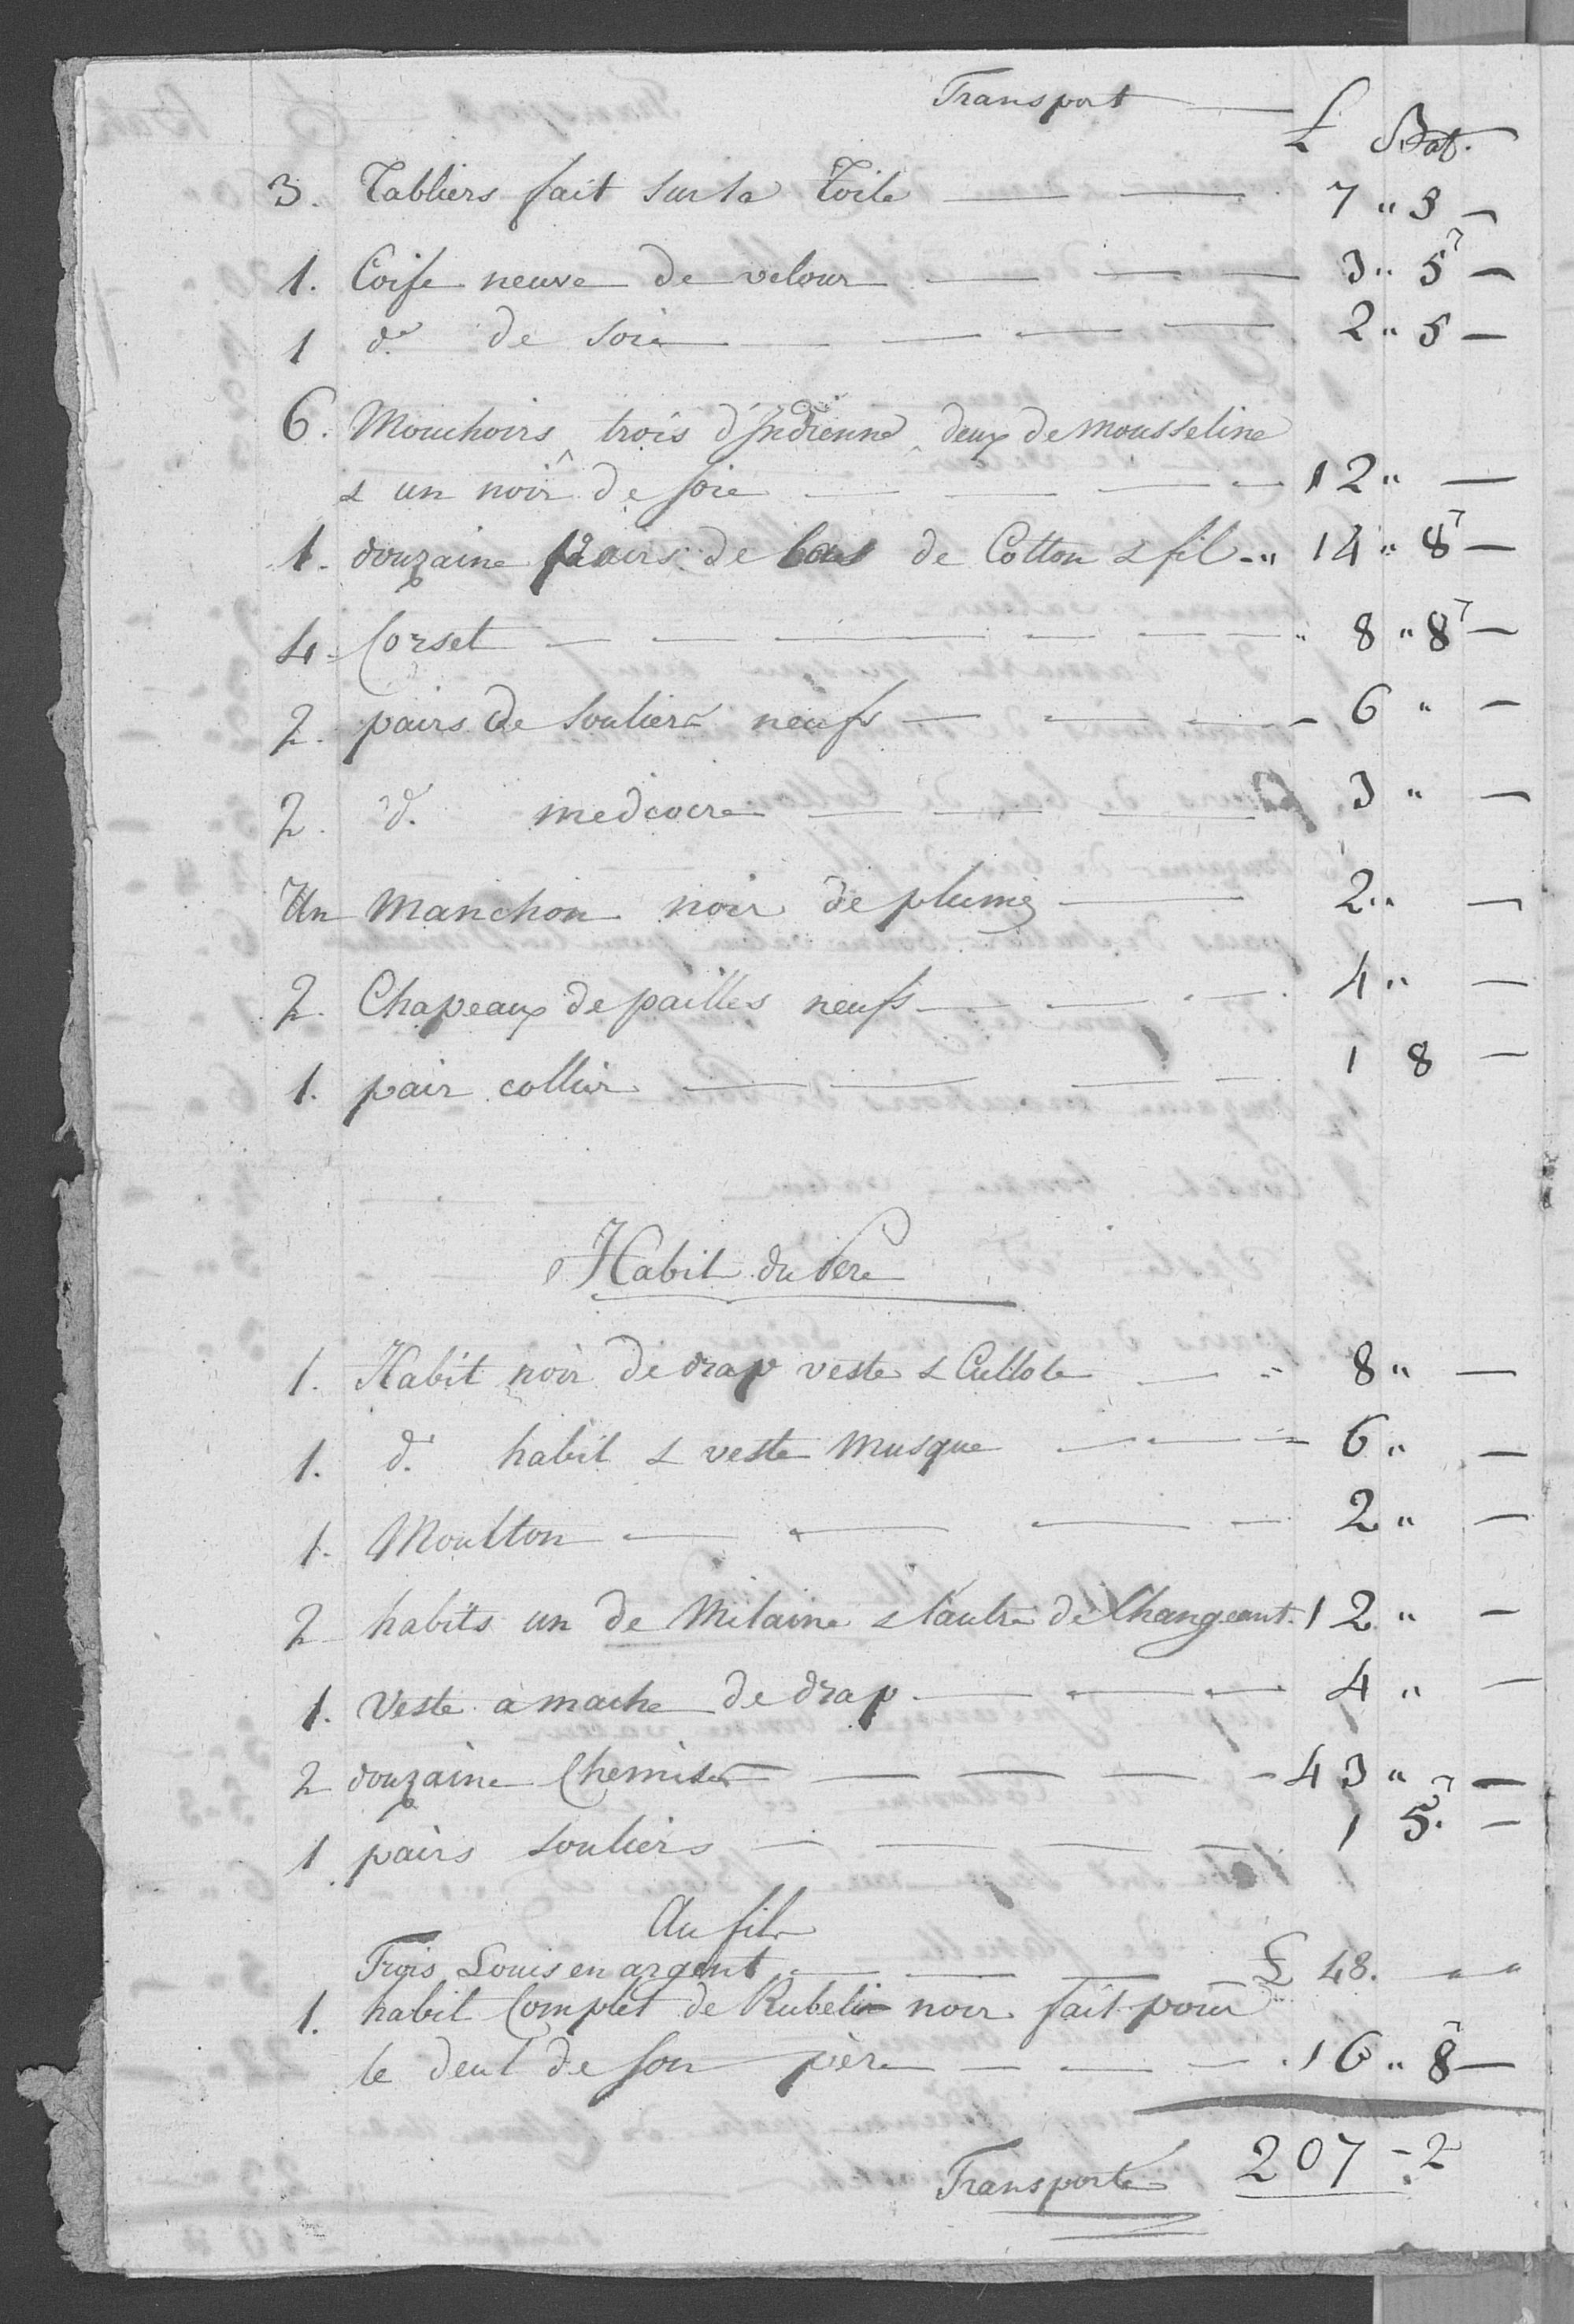 Transport — £ Bat.
3. Tabliers fait sur la Toile — 7 " 3 —
1. Coife neuve de velour — 3 " 5 —
1 do de soie — 2 " 5 —
6. Mouchoirs, trois d'Indienne, deux de mousseline
& un noir de soie — 12 " —
1. douzaine pairs de bas de Cotton & fil - " 14 " 8 —
4 Corset — 8 " 8 —
2. pairs de souliers neufs — 6 " —
2. d. mediocre — 3 " —
Un Manchon noir de plume — 2 " —
2. Chapeaux de pailles neufs — 4 " —
1. pair collier — 1 8 —
Habit du Pere
1. Habit noir de drap veste & Cullote — 8 " —
1. d. habit & veste musque — 6 " —
1. Moultton — 2 " —
2 habits un de Milaine & l'autre de Changeant. 12 " —
1. Veste à mache de drap — 4 " —
2 douzaine Chemises — 43 " —
1 pairs souliers — 1 5. —
Au fils
Trois Louis en argent — £ 48. — "
1. habit Complet de Rubelin noir fait pour
le deul de son père — 16 " 8 —
Transporté 207 - 2